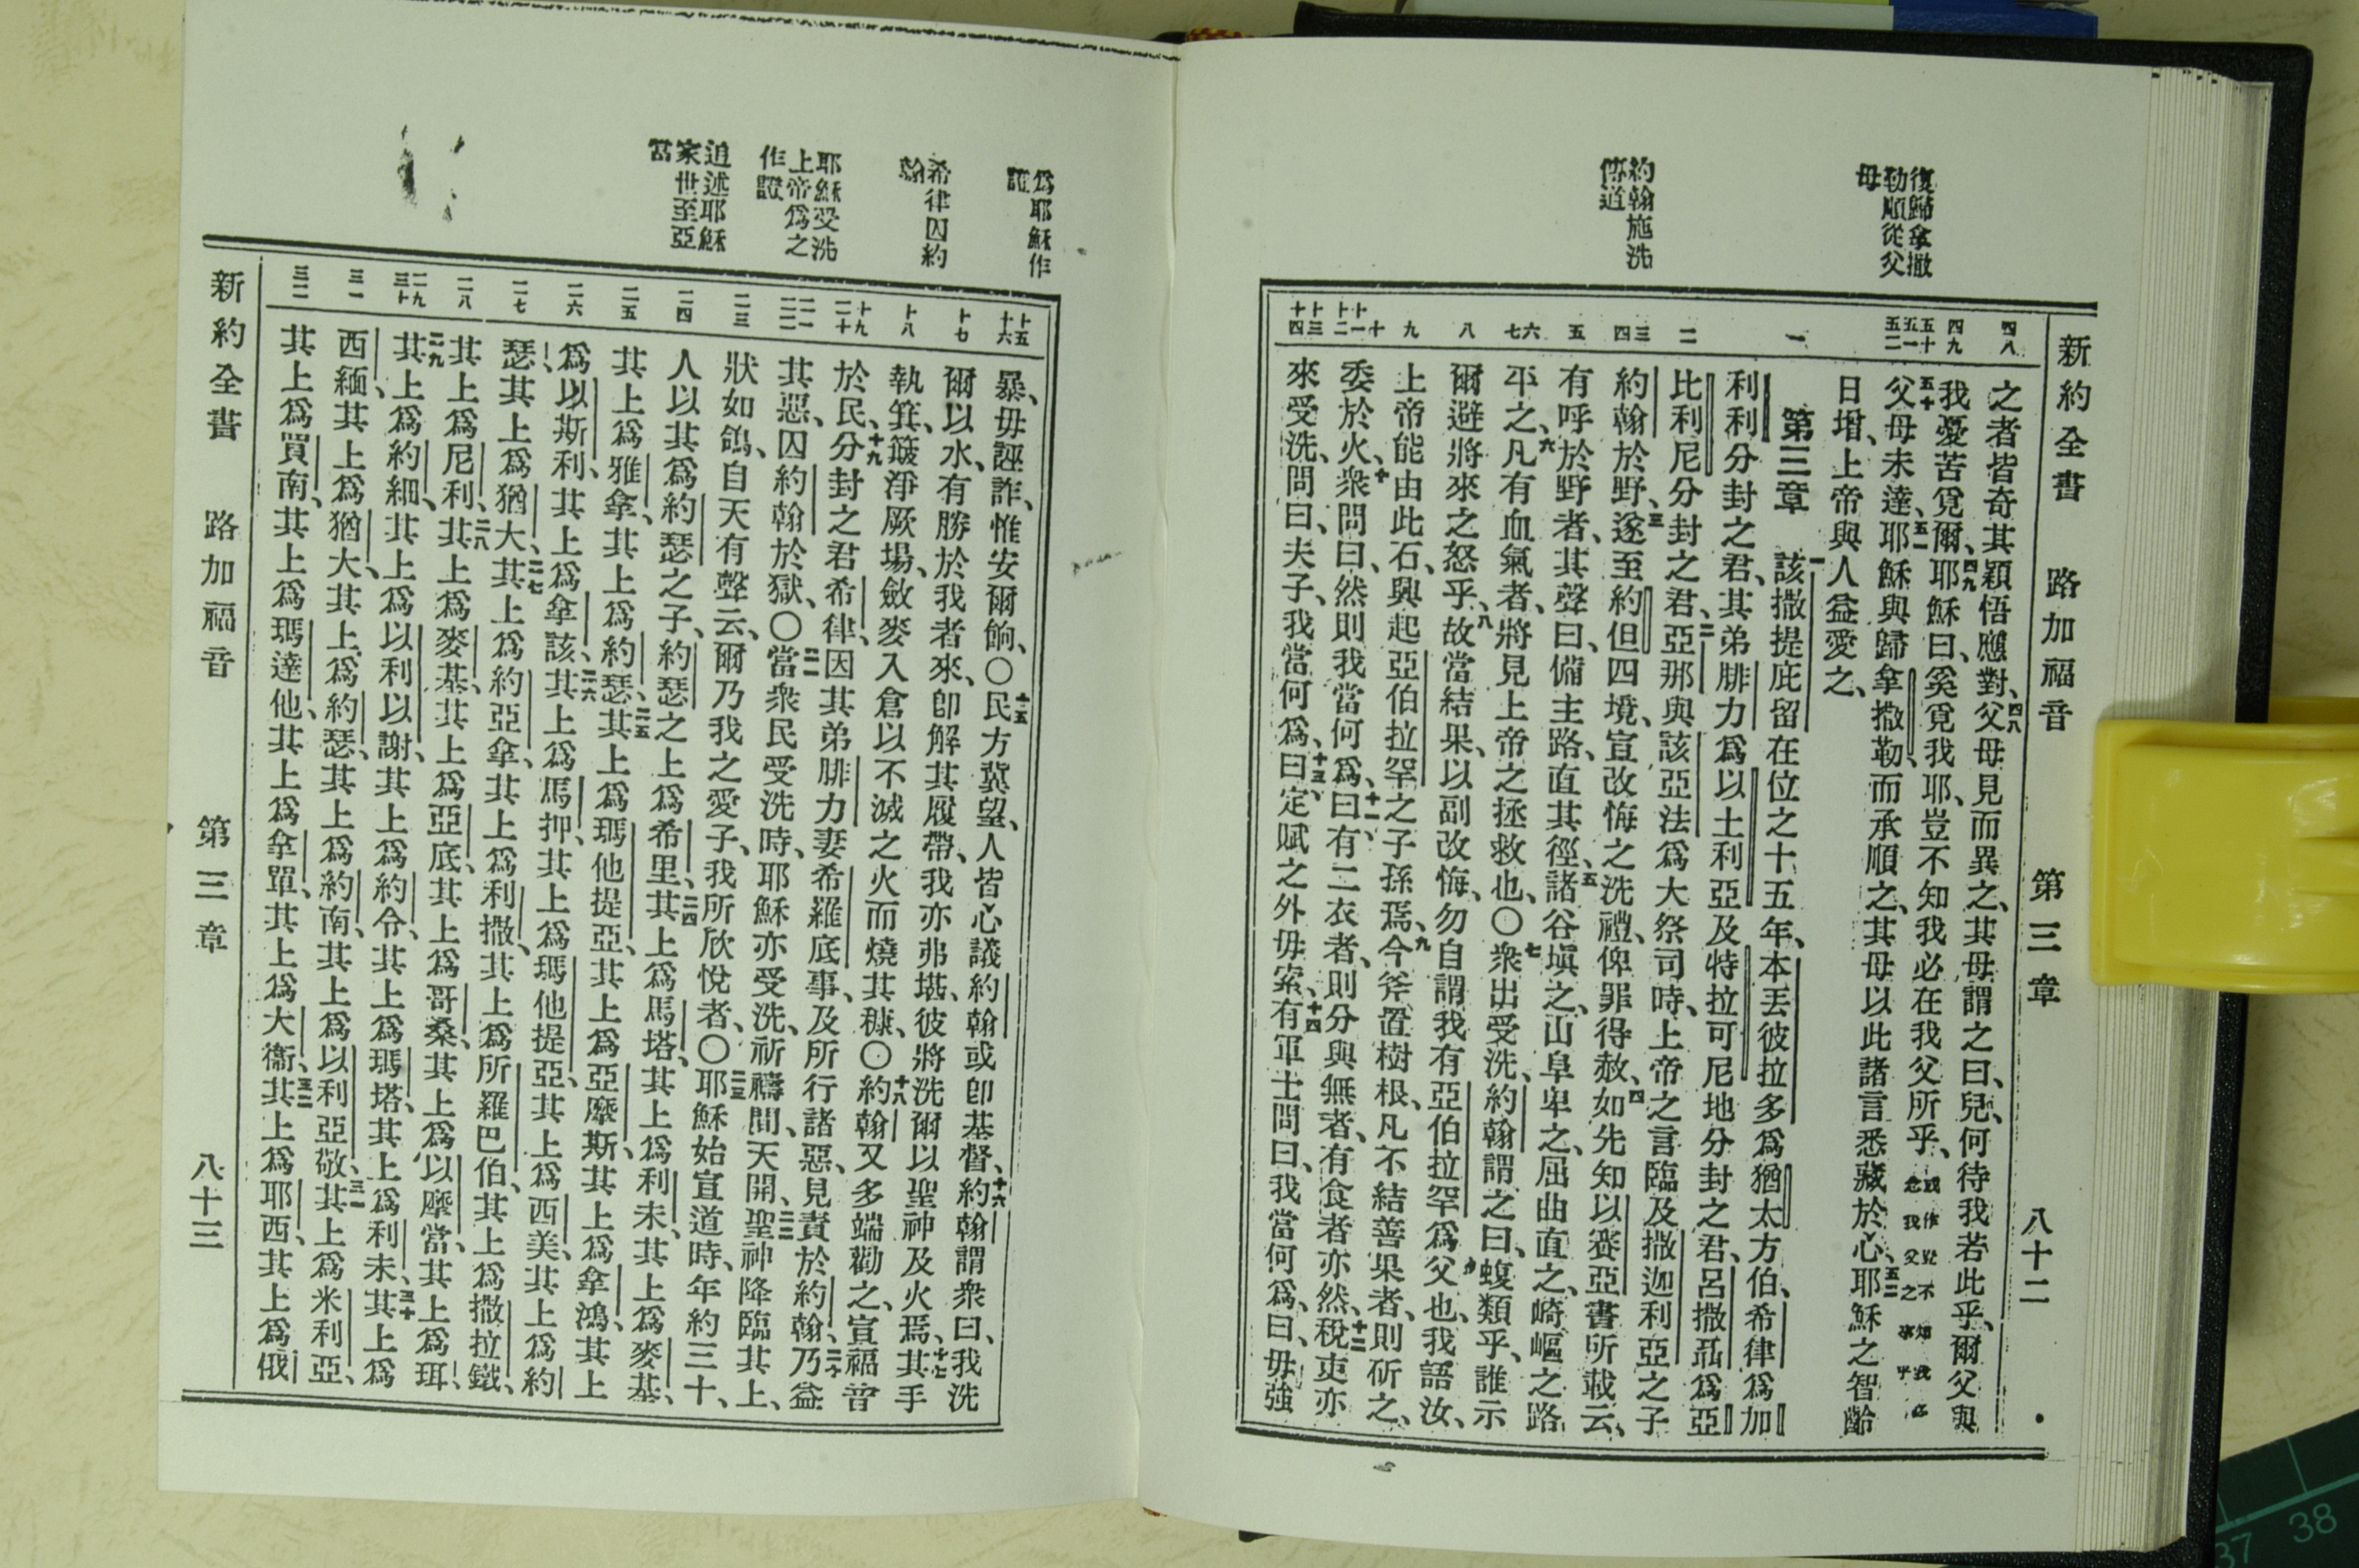 新約全書 路加福音 第三章 八十二
復歸拿撒
勒順從父
母
約翰施洗
傳道
四八
四九
五十
五一
五二
一
二
三
四
五
六
七
八
九
十
十一
十二
十三
十四
之者皆奇其穎悟應對、四八父母見而異之、其母謂之曰、兒、何待我若此乎、爾父與
我憂苦覓爾、四九耶穌曰、奚覓我耶、豈不知我必在我父所乎、或作豈不知我必念我父之事乎
五十父母未達、五一耶穌與歸拿撒勒、而承順之、其母以此諸言悉藏於心、五二耶穌之智齡
日增、上帝與人益愛之、
第三章 一該撒提庇留在位之十五年、本丟彼拉多爲猶太方伯、希律爲加
利利分封之君、其弟腓力爲以土利亞及特拉可尼地分封之君、呂撒聶爲亞
比利尼分封之君、二亞那與該亞法爲大祭司時、上帝之言臨及撒迦利亞之子
約翰於野、三遂至約但四境、宣改悔之洗禮、俾罪得赦、四如先知以賽亞書所載云、
有呼於野者、其聲曰、備主路、直其徑、五諸谷塡之、山阜卑之、屈曲直之、崎嶇之路
平之、六凡有血氣者、將見上帝之拯救也、〇七衆出受洗、約翰謂之曰、蝮類乎、誰示
爾避將來之怒乎、八故當結果、以副改悔、勿自謂我有亞伯拉罕爲父也、我語汝、
上帝能由此石、興起亞伯拉罕之子孫焉、九今斧置樹根、凡不結善果者、則斫之、
委於火、十衆問曰、然則我當何爲、十一曰、有二衣者、則分與無者、有食者亦然、十二稅吏亦
來受洗、問曰、夫子、我當何爲、十三曰、定賦之外毋索、十四有軍士問曰、我當何爲、曰、毋強
爲耶穌作
證
希律囚約
翰
耶穌受洗
上帝爲之
作證
追述耶穌
家世至亞
當
十五
十六
十七
十八
十九
二十
二一
二二
二三
二四
二五
二六
二七
二八
二九
三十
三一
三二
暴、毋誣詐、惟安爾餉、〇十五民方冀望、人皆心議約翰或卽基督、十六約翰謂衆曰、我洗
爾以水、有勝於我者來、卽解其履帶、我亦弗堪、彼將洗爾以聖神及火焉、十七其手
執箕、簸淨厥場、斂麥入倉、以不滅之火而燒其穅、〇十八約翰又多端勸之、宣福音
於民、十九分封之君希律、因其弟腓力妻希羅底事、及所行諸惡、見責於約翰、二十乃益
其惡、囚約翰於獄、〇二一當衆民受洗時、耶穌亦受洗、祈禱間、天開、二二聖神降臨其上、
狀如鴿、自天有聲云、爾乃我之愛子、我所欣悅者、〇二三耶穌始宣道時、年約三十、
人以其爲約瑟之子、約瑟之上爲希里、二四其上爲馬塔、其上爲利未、其上爲麥基、
其上爲雅拿、其上爲約瑟、二五其上爲瑪他提亞、其上爲亞麽斯、其上爲拿鴻、其上
爲以斯利、其上爲拿該、二六其上爲馬押、其上爲瑪他提亞、其上爲西美、其上爲約
瑟、其上爲猶大、二七其上爲約亞拿、其上爲利撒、其上爲所羅巴伯、其上爲撒拉鐵、
其上爲尼利、二八其上爲麥基、其上爲亞底、其上爲哥桑、其上爲以摩當、其上爲珥、
二九其上爲約細、其上爲以利以謝、其上爲約令、其上爲瑪塔、其上爲利未、三十其上爲
西緬、其上爲猶大、其上爲約瑟、其上爲約南、其上爲以利亞敬、三一其上爲米利亞、
其上爲買南、其上爲瑪達他、其上爲拿單、其上爲大衞、三二其上爲耶西、其上爲俄
新約全書 路加福音 第三章 八十三
37 38